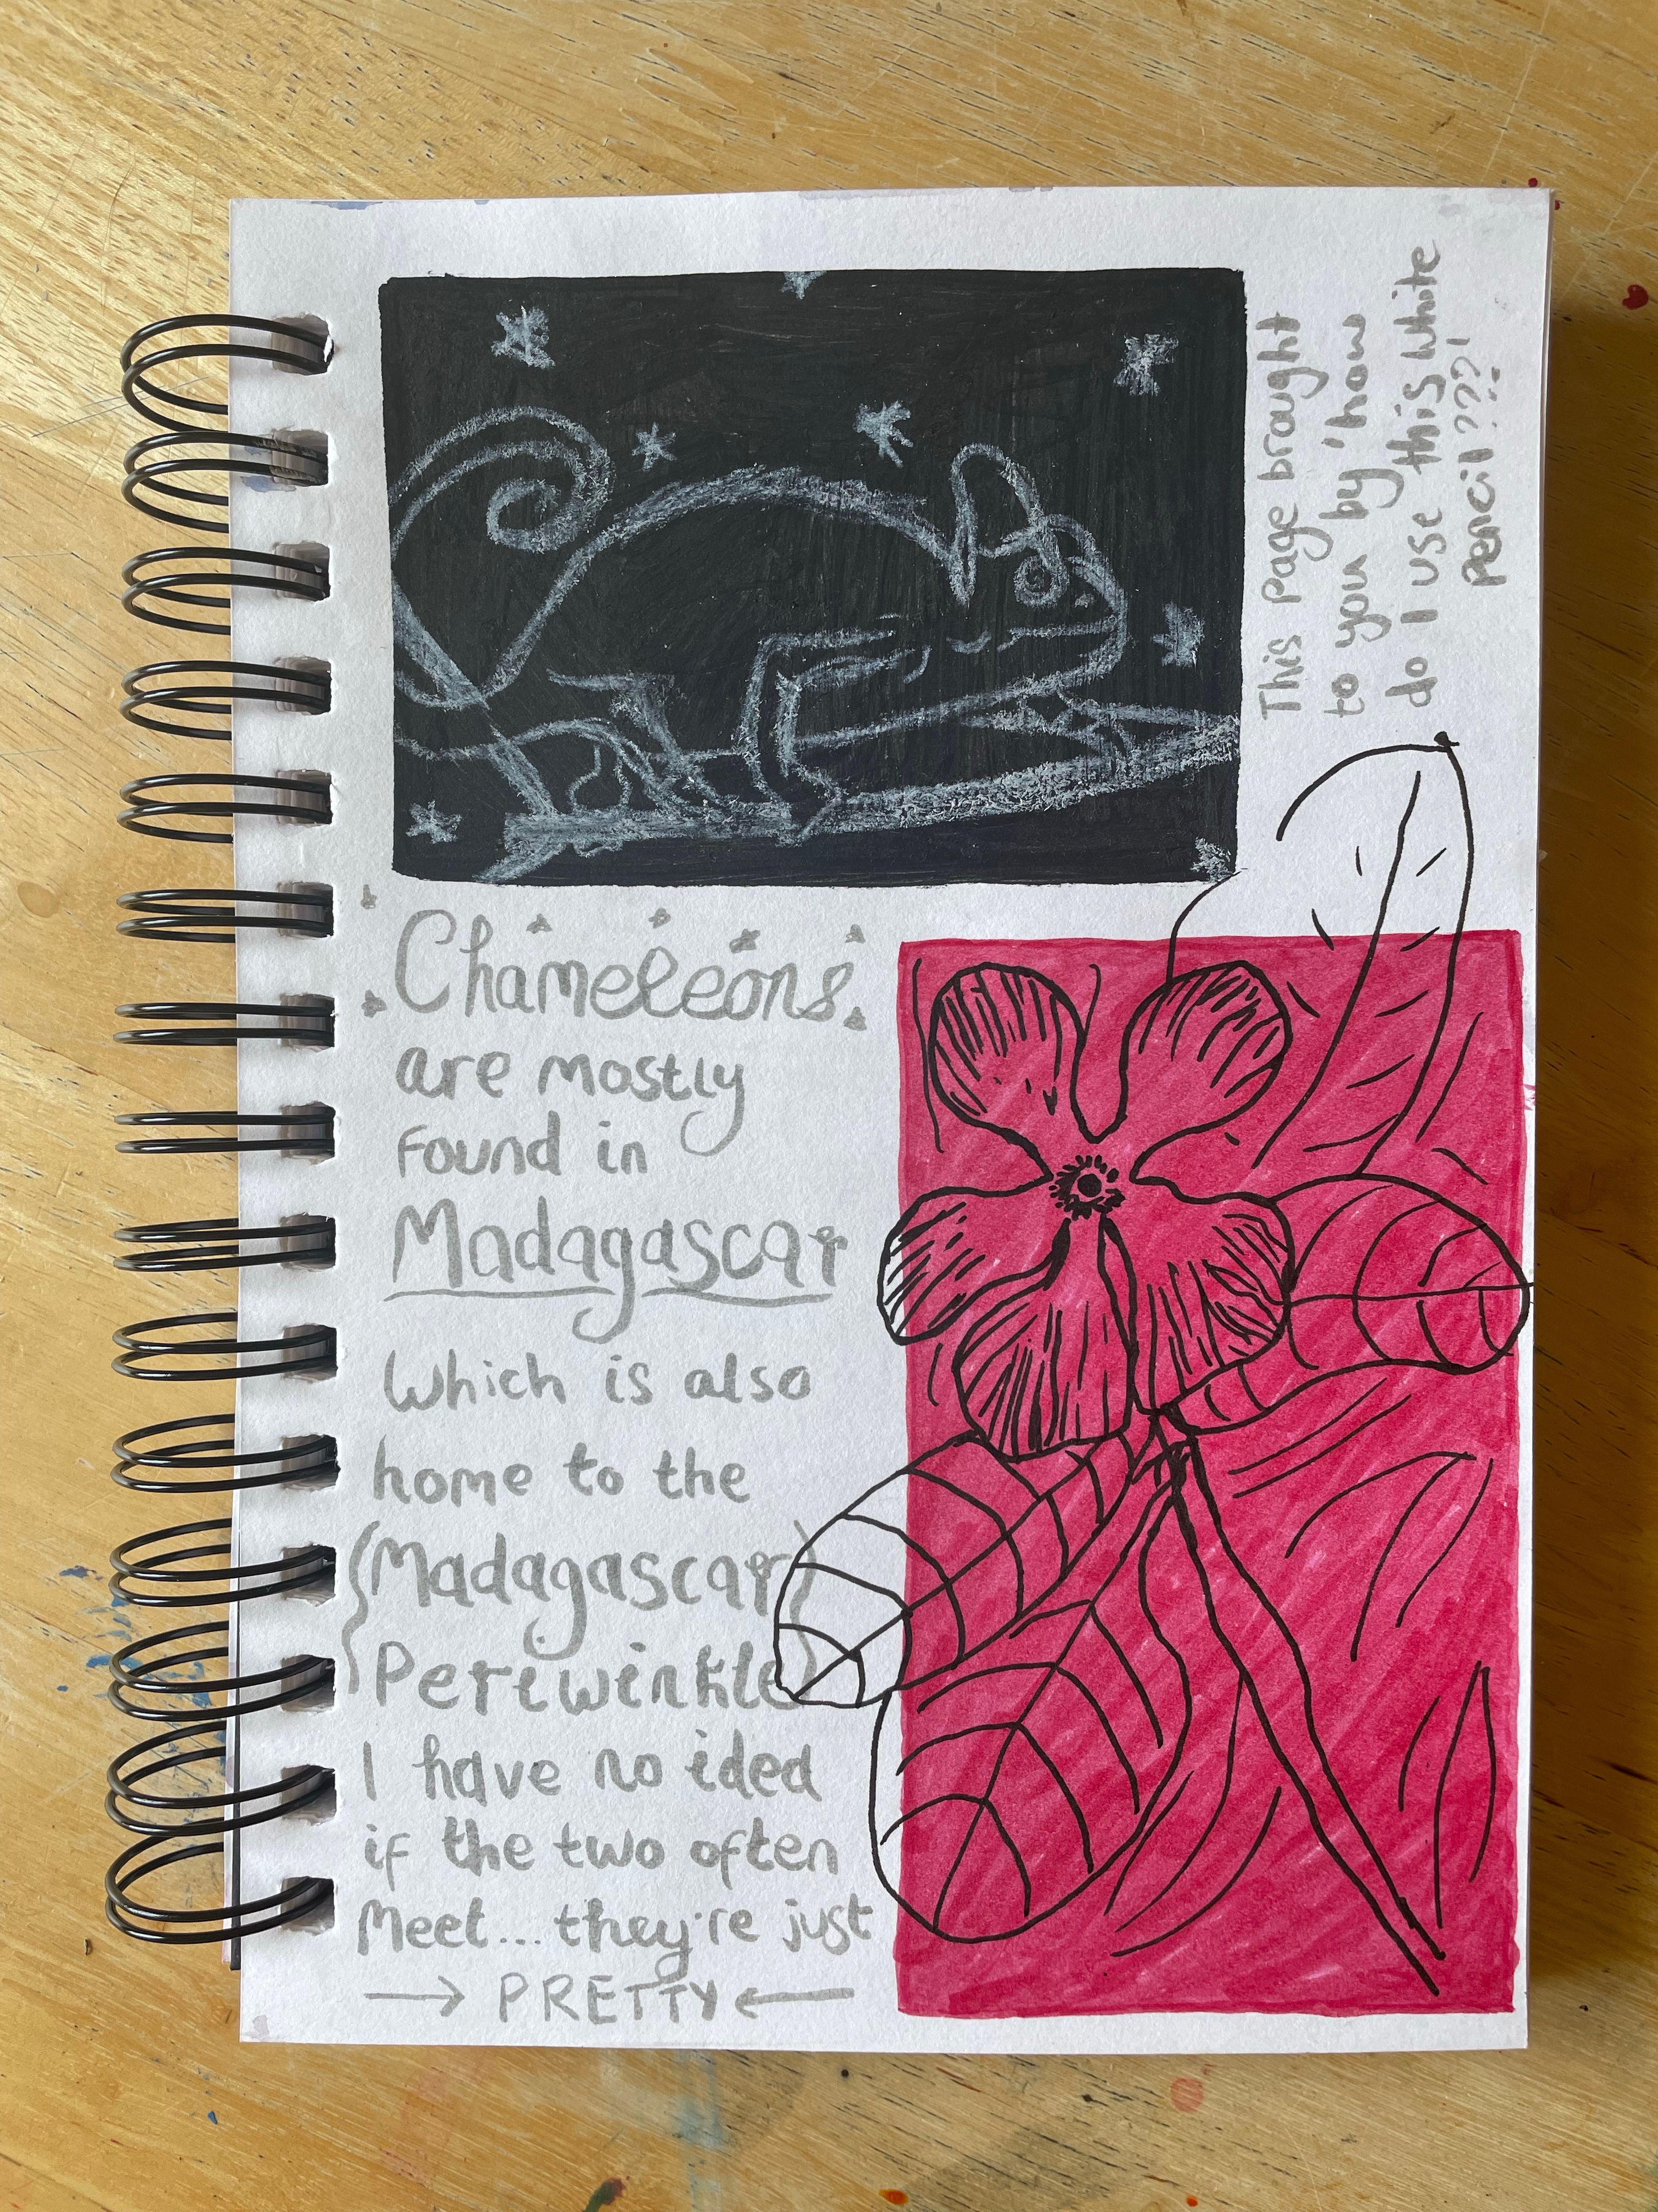 This page brought
to you by 'how
do I use this white
pencil???!
Chameleons
are mostly
found in
Madagascar
Which is also
home to the
(Madagascar
Periwinkle)
I have no idea
if the two often
Meet... they're just
→ PRETTY ←